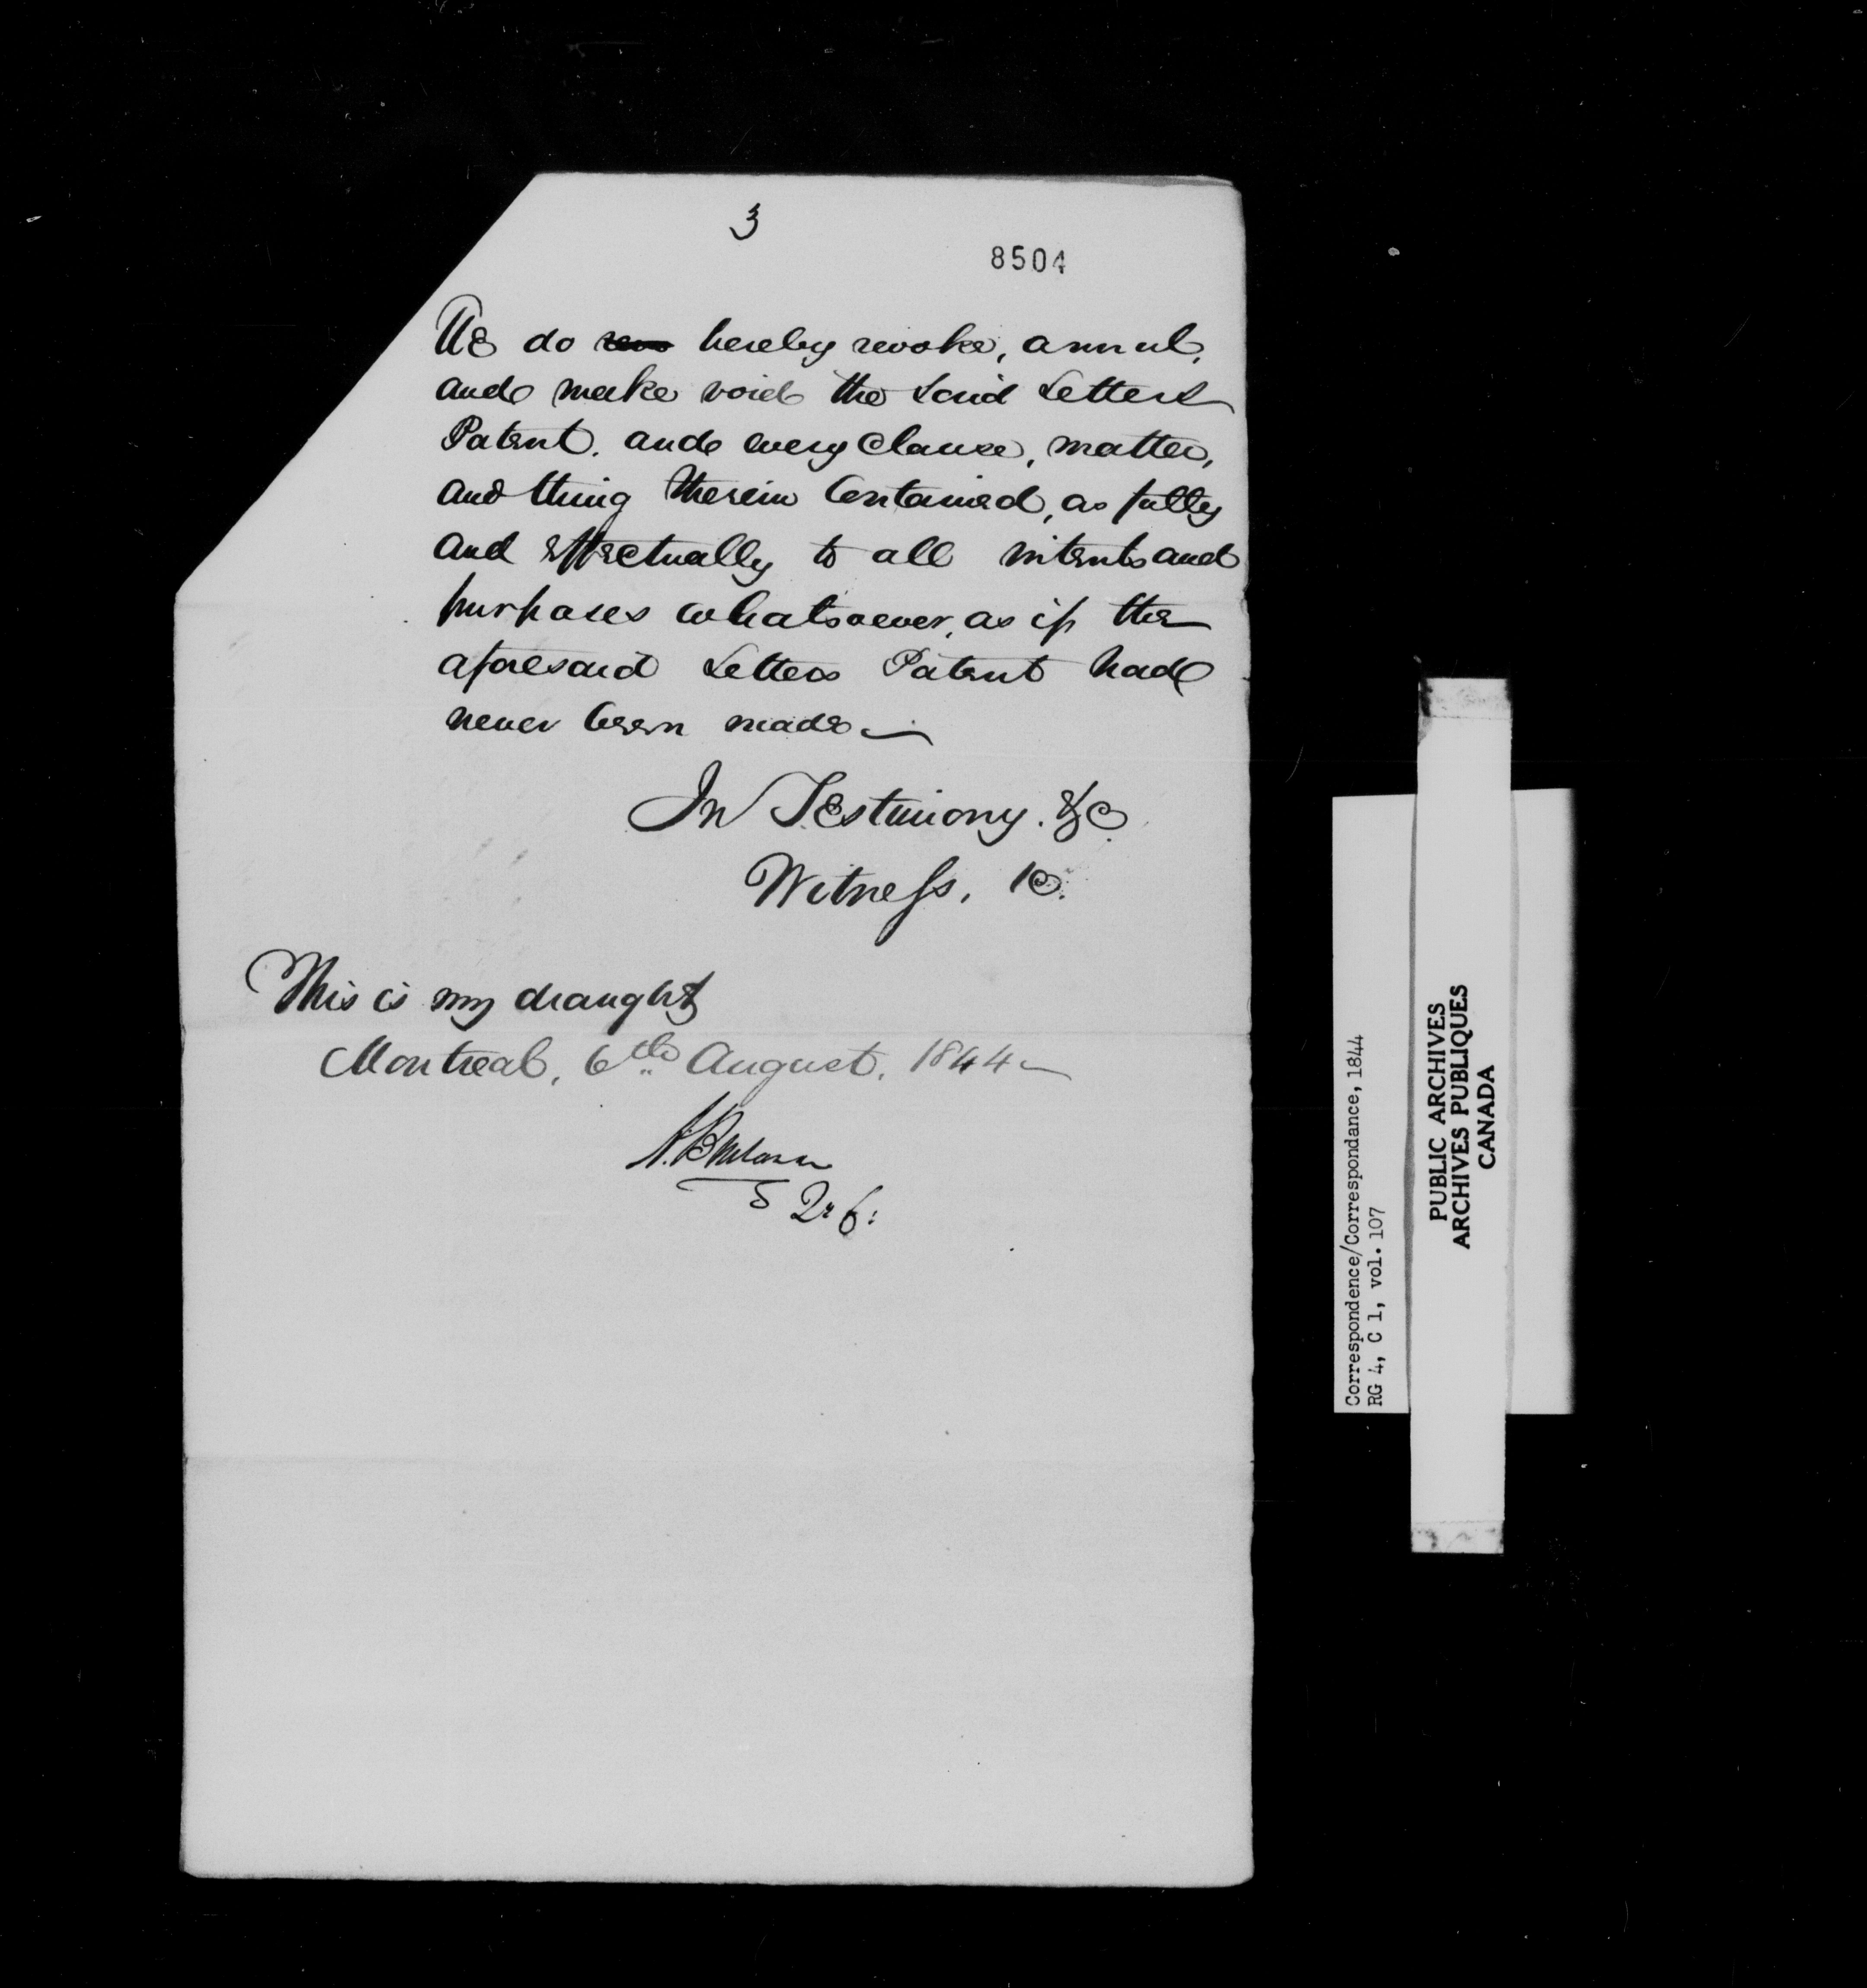 3
8504
We do hereby revoke, annul,
and make void the said Letters
Patent. and every Clause, matter,
and thing therein Contained, as fully
and effectually to all intents and
purposes whatsoever, as if the
aforesaid Letters Patent had
never been made
In Testimony. &c.
Witness, &c.
This is my draught
Montreal, 6th August. 1844
Q. 6:
Correspondence/Correspondance, 1844
RG 4, C 1, vol. 107
PUBLIC ARCHIVES
ARCHIVES PUBLIQUES
CANADA